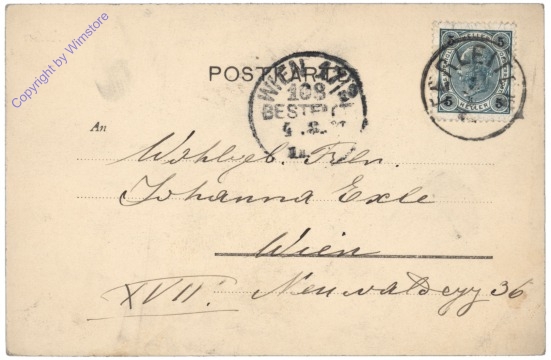 Copyright by Wimstore
POSTKARTE
WIEN 17/1
108
BESTELLT
5 5
HELLER
An
Wohlgeb. Frln.
Johanna Exle
Wien
XVII. Neuwaldegg 36